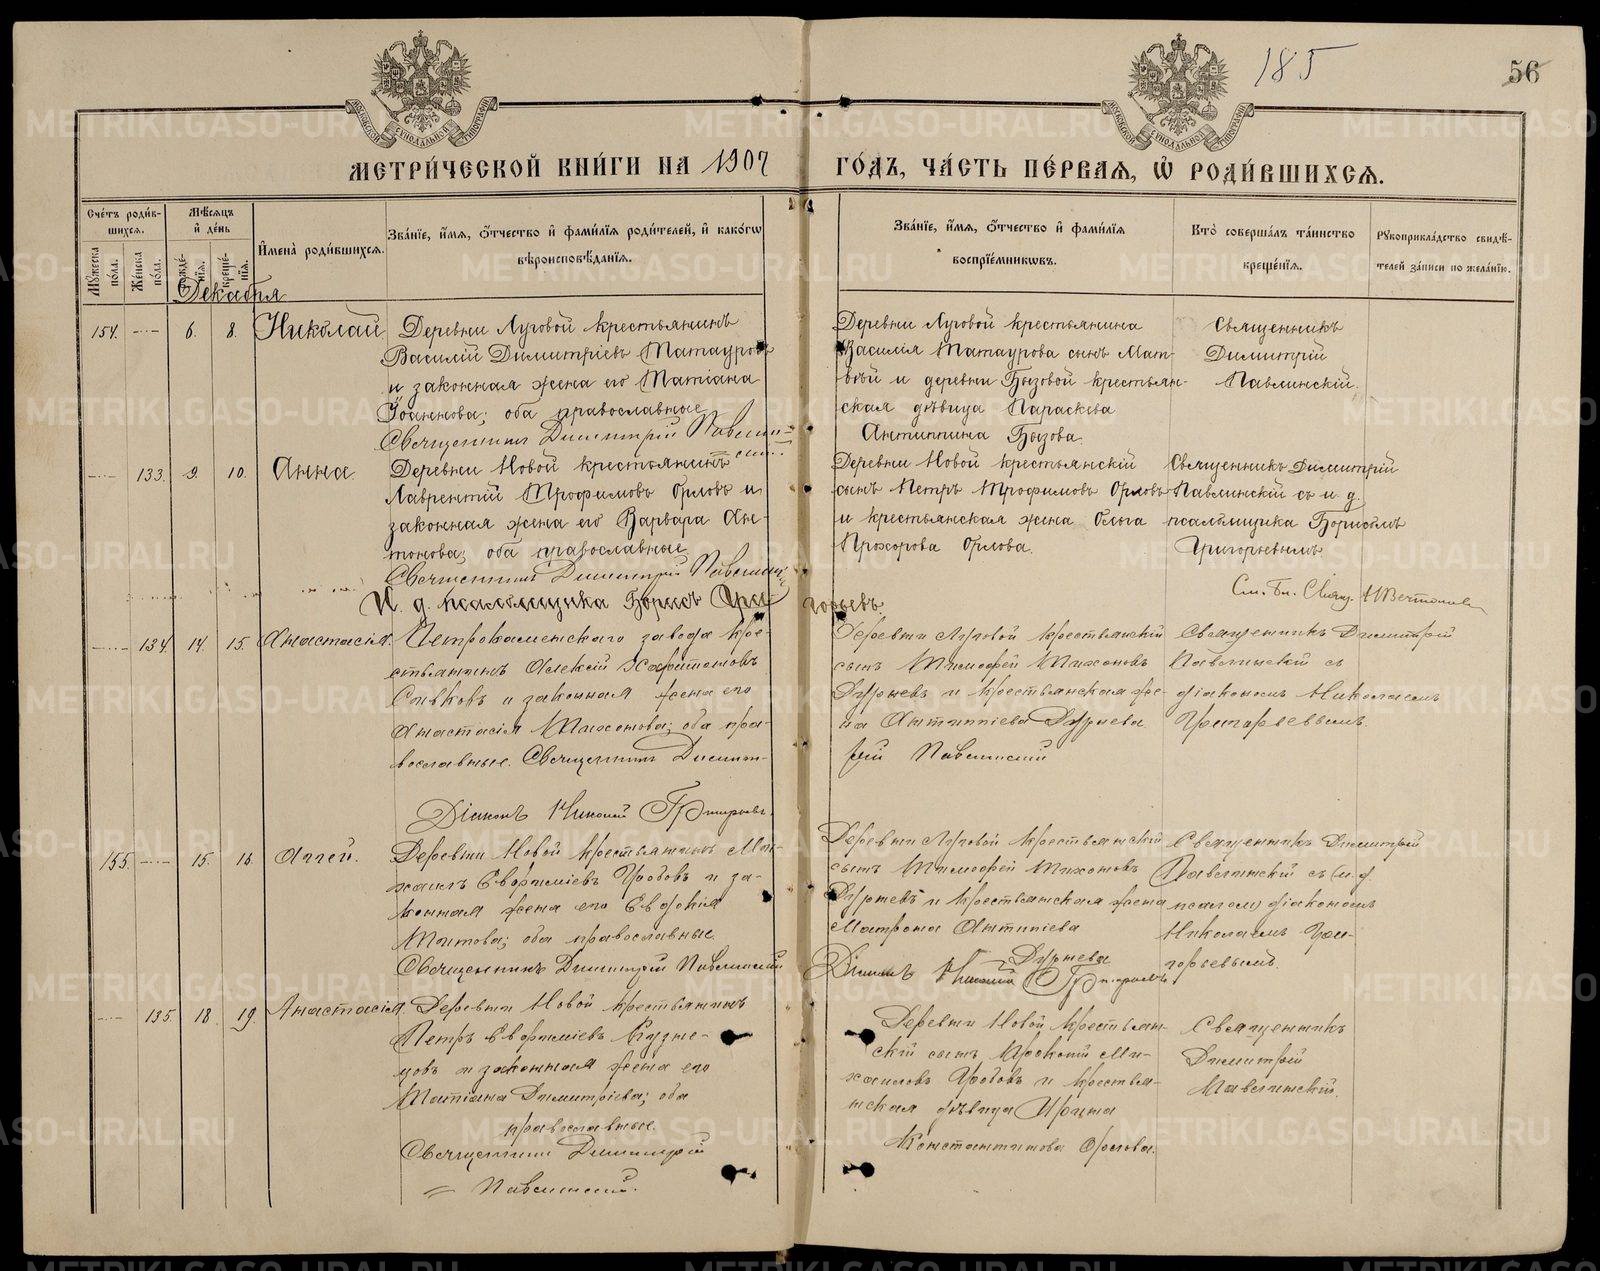 185
56
МЕТРИ́ЧЕСКОЙ КНИ́ГИ НА 1907 ГО́ДЪ, ЧА́СТЬ ПЕ́РВАЯ, Ѡ҆ РОДИ́ВШИХСЯ.
Сче́тъ роди́в-
шихся.
Мѣ́сяцъ
и҆ де́нь
И҆мена̀ роди́вшихся.
Зва́нїе, и҆́мя, ѻ҆́тчество и҆ фами́лїя роди́телей, и҆ како́гѡ
вѣроисповѣ́данїя.
Зва́нїе, и҆́мя, ѻ҆́тчество и҆ фами́лїя
воспрїе́мникѡвъ.
Кто̀ соверша́лъ та́инство
креще́нїя.
Рꙋкоприкла́дство свидѣ́-
телей за́писи по жела́нїю.
Мꙋ́жеска
по́ла.
Же́нска
по́ла.
Рожде́-
нїя.
Креще́-
нїя.
Декабря
154. 6. 8. Николай
Деревни Луговой крестьянинъ
Василій Димитріевъ Матауровъ
и законная жена его Татіана
Іоаннова; оба православные
Священникъ Димитрій Павлин-
скій
Деревни Луговой крестьянина
Василія Матаурова сынъ Мат-
вѣй и деревни Бызовой крестьян-
ская дѣвица Параскева
Антиппина Бызова.
Священникъ
Димитрій
Павлинскій.
133. 9. 10. Анна.
Деревни Новой крестьянинъ
Лаврентій Трофимовъ Орловъ и
законная жена его Варвара Ан-
тонова; оба православные
Священникъ Димитрій Павлинскій
И. д. псаломщика Борисъ Григорьевъ
Деревни Новой крестьянскій
сынъ Петръ Трофимовъ Орловъ
и крестьянская жена Ольга
Прохорова Орлова.
Священникъ Димитрій
Павлинскій съ и. д.
псаломщика Борисомъ
Григорьевымъ.
См. Бл. Свящ.
134. 14. 15. Анастасія.
Петрокаменскаго завода кре-
стьянинъ Алексій Харитоновъ
Сивковъ и законная жена его
Анастасія Тихонова; оба пра-
вославные. Священникъ Димит-
рій Павлинскій
Діаконъ Николай Григорьевъ.
Деревни Луговой крестьянскій
сынъ Тимофей Тихоновъ
и крестьянская же-
на Антиппіева
Священникъ Димитрій
Павлинскій съ
діакономъ Николаемъ
Григорьевымъ.
155. 15. 16. Аггей.
Деревни Новой крестьянинъ Ми-
хаилъ Евфиміевъ и за-
конная жена его Евдокія
Титова; оба православные.
Священникъ Димитрій Павлинскій
Діаконъ Николай Григорьевъ
Деревни Луговой крестьянскій
сынъ Тимофей Тихоновъ
и крестьянская жена
Матрона Антипіева
Священникъ Димитрій
Павлинскій съ (и. д.
псалом) діакономъ
Николаемъ Гри-
горьевымъ.
135. 18. 19. Анастасія.
Деревни Новой крестьянинъ
Петръ Евфиміевъ Кузне-
цовъ и законная жена его
Татіана Димитріева; оба
православные.
Священникъ Димитрій
Павлинскій.
Деревни Новой крестьян-
скій сынъ Прокопій Ми-
хаиловъ и крестья-
нская дѣвица Ирина
Константинова Орлова.
Священникъ
Димитрій
Павлинскій.